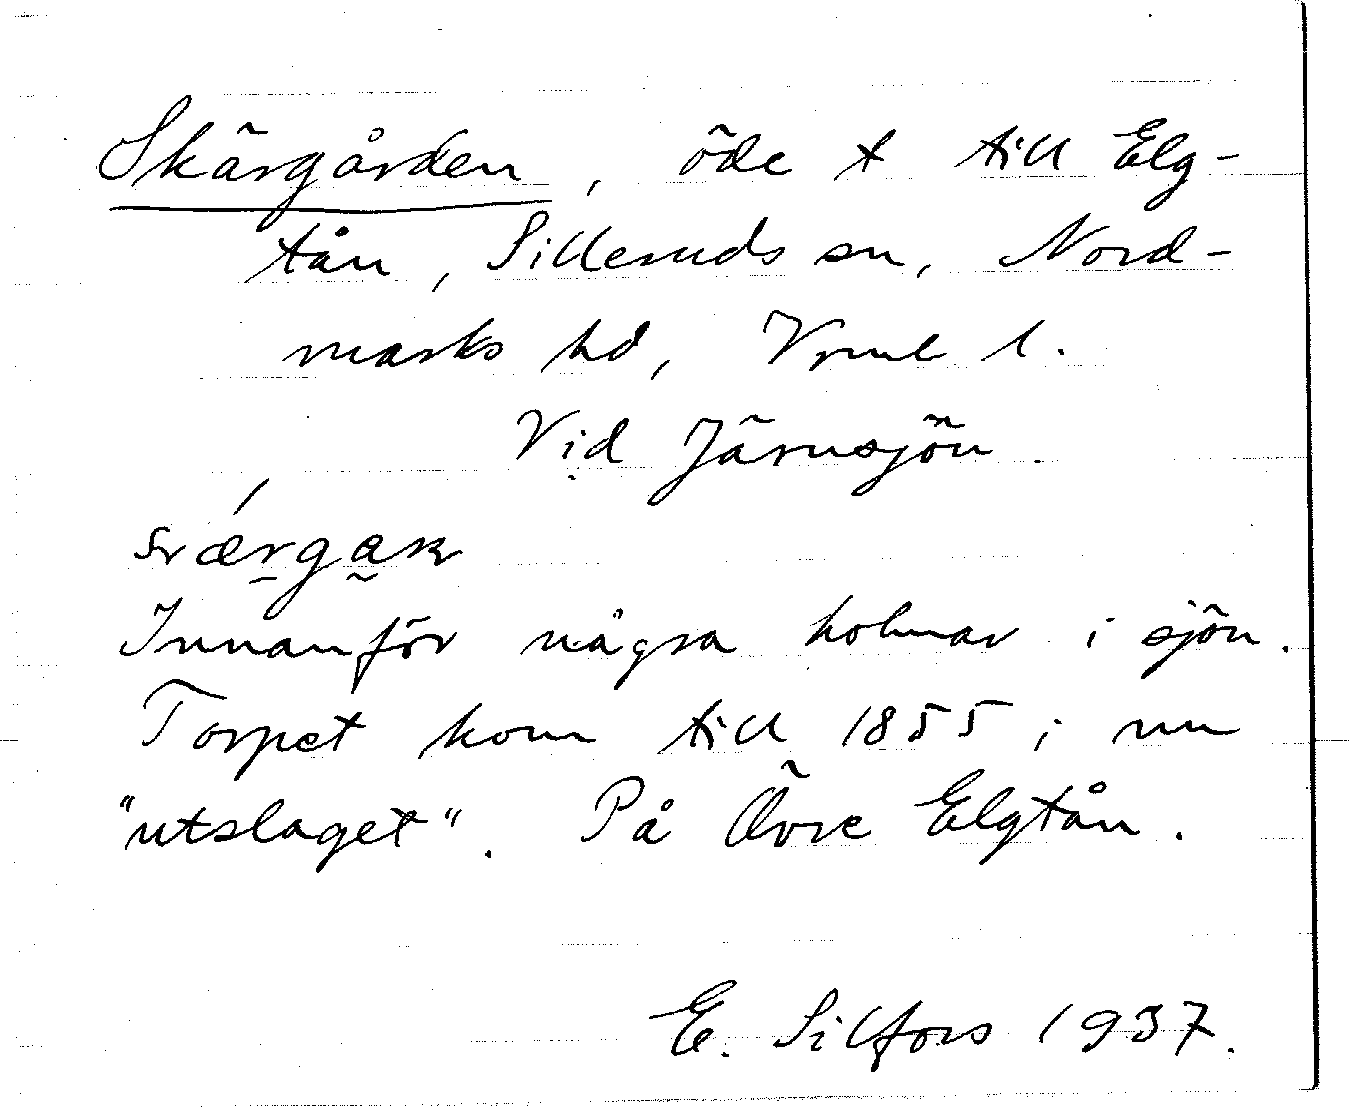 Skärgården, öde t till Elg-
tån, Silleruds sn, Nord-
marks hd, Vrml l.
Vid Järnsjön.
Innanför några holmar i sjön.
Torpet kom till 1855; nu
"utslaget". På Övre Elgtån.
E. Silfors 1937.